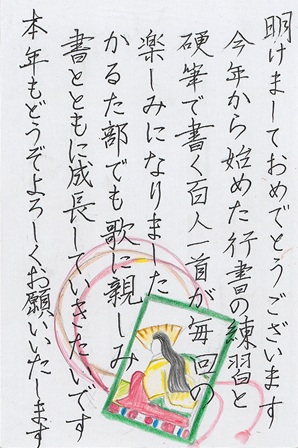 明けましておめでとうございます
今年から始めた行書の練習と
硬筆で書く百人一首が毎回の
楽しみになりました
かるた部でも歌に親しみ
書とともに成長していきたいです
本年もどうぞよろしくお願いいたします